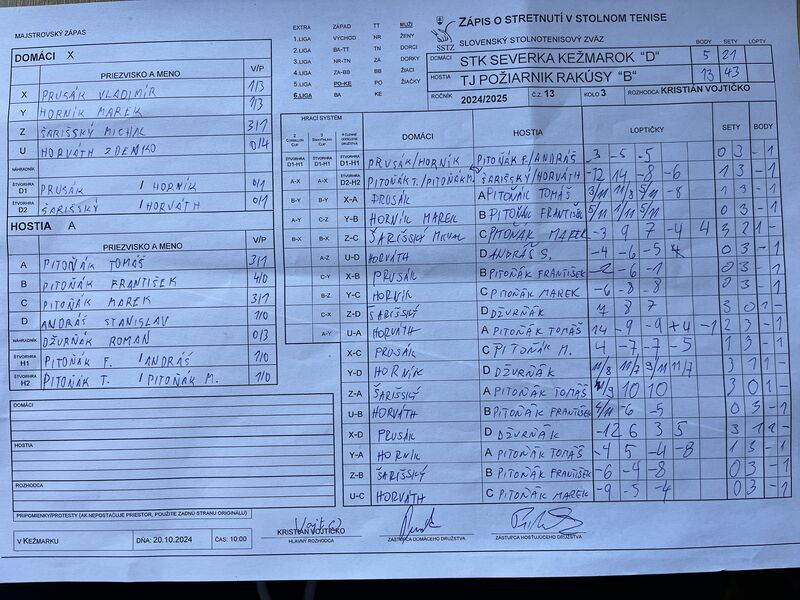 MAJSTROVSKÝ ZÁPAS
DOMÁCI X
PRIEZVISKO A MENO V/P
X PRUSÁK VLADIMÍR 1/3
Y HORNÍK MAREK 1/3
Z ŠARIŠSKÝ MICHAL 3/1
U HORVÁTH ZDENKO 0/4
NÁHRADNÍK
ŠTVORHRA D1 PRUSÁK / HORNÍK 0/1
ŠTVORHRA D2 ŠARIŠSKÝ / HORVÁTH 0/1
HOSTIA A
PRIEZVISKO A MENO V/P
A PITOŇÁK TOMÁŠ 3/1
B PITOŇÁK FRANTIŠEK 4/0
C PITOŇÁK MAREK 3/1
D ANDRÁŠ STANISLAV 1/0
NÁHRADNÍK DŽURŇÁK ROMAN 0/3
ŠTVORHRA H1 PITOŇÁK F. / ANDRÁŠ 1/0
ŠTVORHRA H2 PITOŇÁK T. / PITOŇÁK M. 1/0
DOMÁCI
HOSTIA
ROZHODCA
PRIPOMIENKY/PROTESTY (AK NEPOSTAČUJE PRIESTOR, POUŽITE ZADNÚ STRANU ORIGINÁLU)
V KEŽMARKU DŇA: 20.10.2024 ČAS: 10:00
EXTRA ZÁPAD TT MUŽI
1.LIGA VÝCHOD NR ŽENY
2.LIGA BA-TT TN DORCI
3.LIGA NR-TN ZA DORKY
4.LIGA ZA-BB BB ŽIACI
5.LIGA PO-KE PO ŽIAČKY
6.LIGA BA KE
SSTZ
ZÁPIS O STRETNUTÍ V STOLNOM TENISE
SLOVENSKÝ STOLNOTENISOVÝ ZVÄZ
BODY SETY LOPTY
DOMÁCI STK SEVERKA KEŽMAROK "D" 5 21
HOSTIA TJ POŽIARNIK RAKÚSY "B" 13 43
ROČNÍK 2024/2025 Č.Z. 13 KOLO 3 ROZHODCA KRISTIÁN VOJTIČKO
HRACÍ SYSTÉM
DOMÁCI HOSTIA LOPTIČKY SETY BODY
ŠTVORHRA D1-H1 ŠTVORHRA D1-H1 ŠTVORHRA D1-H1 PRUSÁK/HORNÍK PITOŇÁK F./ANDRÁŠ -3 -5 -5 0 3 -1
A-X A-X ŠTVORHRA D2-H2 PITOŇÁK T./PITOŇÁK M. ŠARIŠSKÝ/HORVÁTH -12 14 -8 -6 1 3 -1
B-Y B-Y X-A PRUSÁK A PITOŇÁK TOMÁŠ 1 3 -1
A-Y C-Z Y-B HORNÍK MAREK B PITOŇÁK FRANTIŠEK 5/11 1/11 5/11 0 3 -1
B-X B-X Z-C ŠARIŠSKÝ MICHAL C PITOŇÁK MAREK -3 9 7 -4 4 3 2 1 -
A-Z U-D HORVÁTH D ANDRÁŠ S. -4 -6 -5 0 3 -1
C-Y X-B PRUSÁK B PITOŇÁK FRANTIŠEK -2 -6 -1 0 3 -1
B-Z Y-C HORNÍK C PITOŇÁK MAREK -6 -8 -8 0 3 -1
C-X Z-D ŠARIŠSKÝ D DŽURŇÁK 7 8 7 3 0 1 -
A-Y U-A HORVÁTH A PITOŇÁK TOMÁŠ 14 -9 -9 +4 -1 2 3 -1
X-C PRUSÁK C PITOŇÁK M. 4 -7 -7 -5 1 3 -1
Y-D HORNÍK D DŽURŇÁK 11/8 11/7 9/11 11/7 3 1 1 -
Z-A ŠARIŠSKÝ A PITOŇÁK TOMÁŠ 11/9 10 10 3 0 1 -
U-B HORVÁTH B PITOŇÁK FRANTIŠEK -6 -5 0 3 -1
X-D PRUSÁK D DŽURŇÁK -12 6 3 5 3 1 1 -
Y-A HORNÍK A PITOŇÁK TOMÁŠ -4 5 -4 -8 1 3 -1
Z-B ŠARIŠSKÝ B PITOŇÁK FRANTIŠEK -6 -4 -8 0 3 -1
U-C HORVÁTH C PITOŇÁK MAREK -9 -5 -4 0 3 -1
KRISTIÁN VOJTIČKO
HLAVNÝ ROZHODCA
ZÁSTUPCA DOMÁCEHO DRUŽSTVA
ZÁSTUPCA HOSŤUJÚCEHO DRUŽSTVA